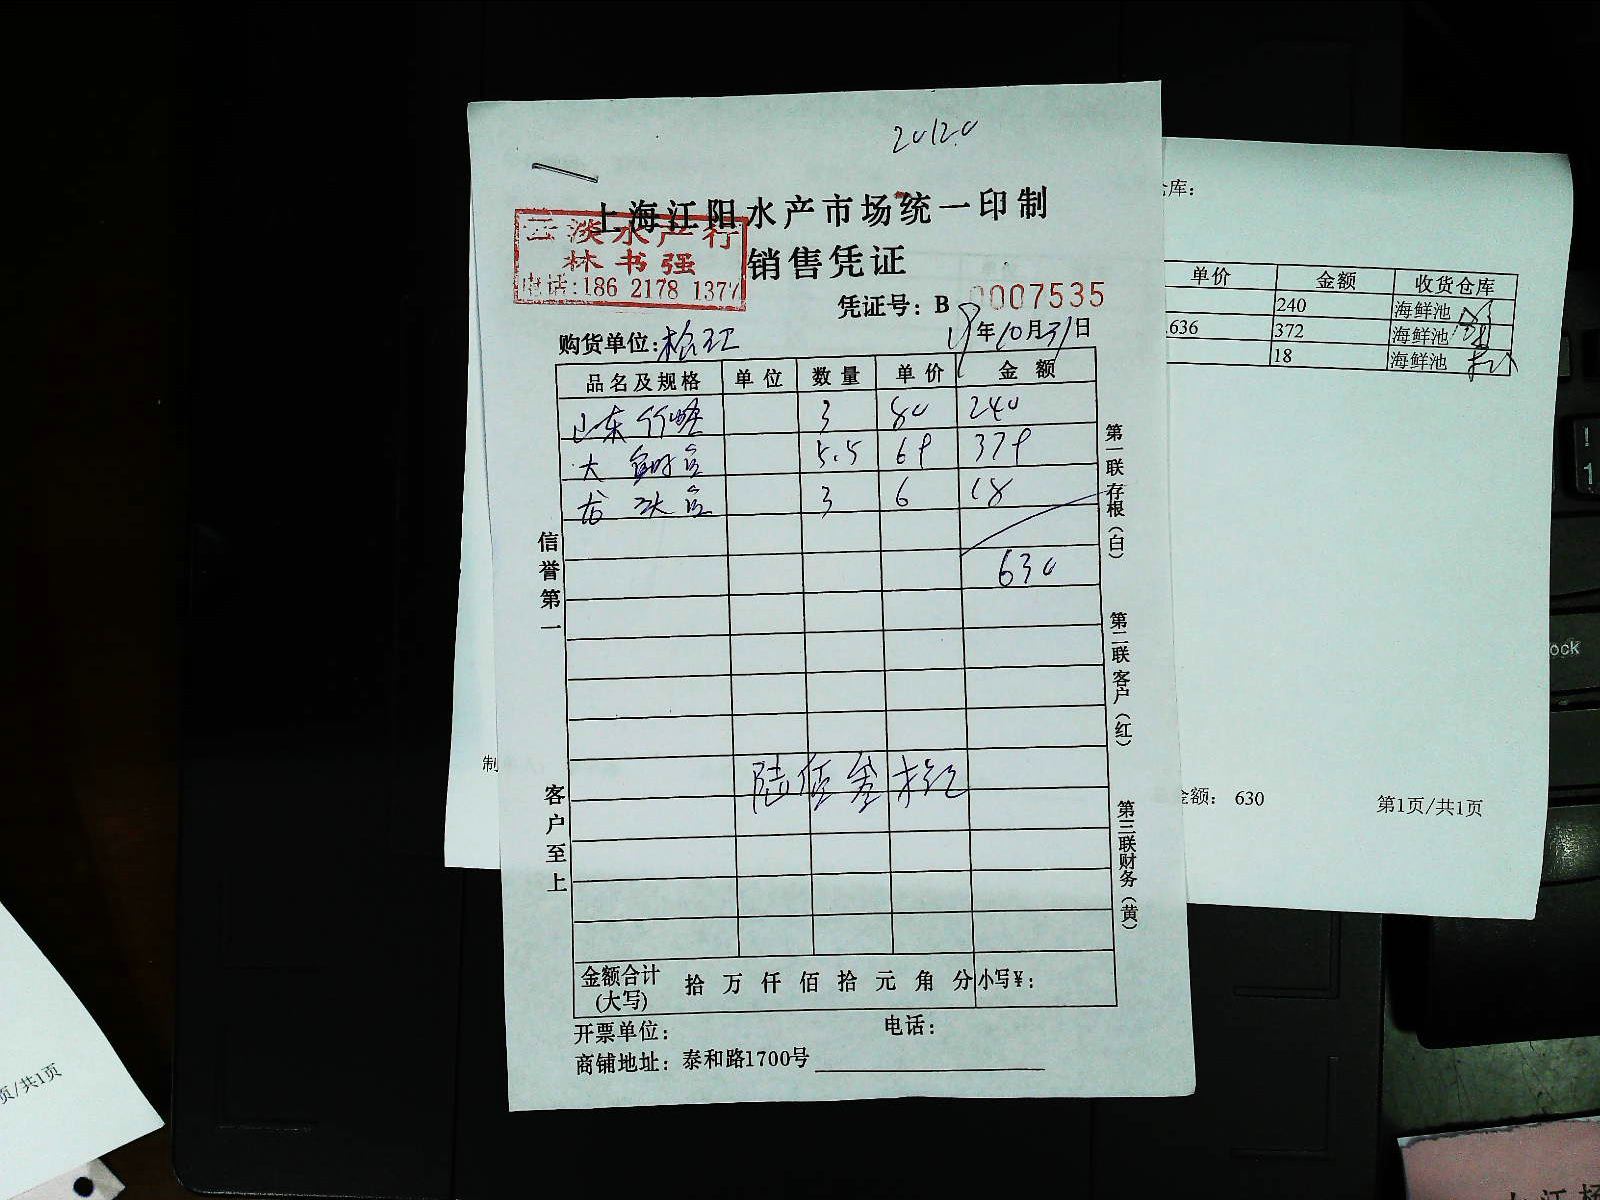 20120
上海江阳水产市场统一印制
云淡水产行
林书强
电话:186 2178 1377
销售凭证
凭证号: B 0007535
购货单位:松江
18年10月31日
品名及规格 单位 数量 单价 金额
山东竹蛏 3 80 240
大 5.5 68 378
3 6 18
630
陆佰叁拾元
信誉第一
客户至上
第一联存根(白)
第二联客户(红)
第三联财务(黄)
金额合计(大写) 拾 万 仟 佰 拾 元 角 分 小写¥:
开票单位: 电话:
商铺地址: 泰和路1700号
仓库:
单价 金额 收货仓库
240 海鲜池
.636 372 海鲜池
18 海鲜池
金额: 630 第1页/共1页
制
页/共1页
ock